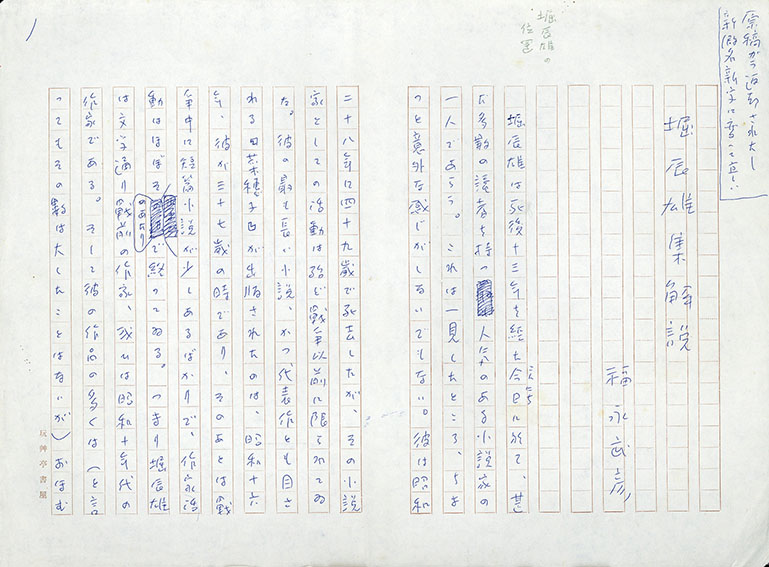 原稿から返却されたし
新仮名新字に改めて宜しい
堀辰雄の
位置
堀辰雄集解説
福永武彦
堀辰雄は死後十三年を経た今日に於て、甚
だ多数の読者を持つ人気のある小説家の
一人であらう。これは一見したところ、ちよ
つと意外な感じがしないでもない。彼は昭和
二十八年に四十九歳で死去したが、その小説
家としての活動は殆ど戦争以前に限られてゐ
た。彼の最も長い小説、かつ代表作とも目さ
れる「菜穂子」が出版されたのは、昭和十六
年、彼が三十七歳の時であり、そのあとは戦
争中に短篇小説が少しあるばかりで、作家活
動はほぼそのあたりで終つてゐる。つまり堀辰雄
は文字通り戦前の作家、或ひは昭和十年代の
作家である。そして彼の作品の多くは(と言
つてもその数は大したことはないが)おほむ
玩艸亭書屋